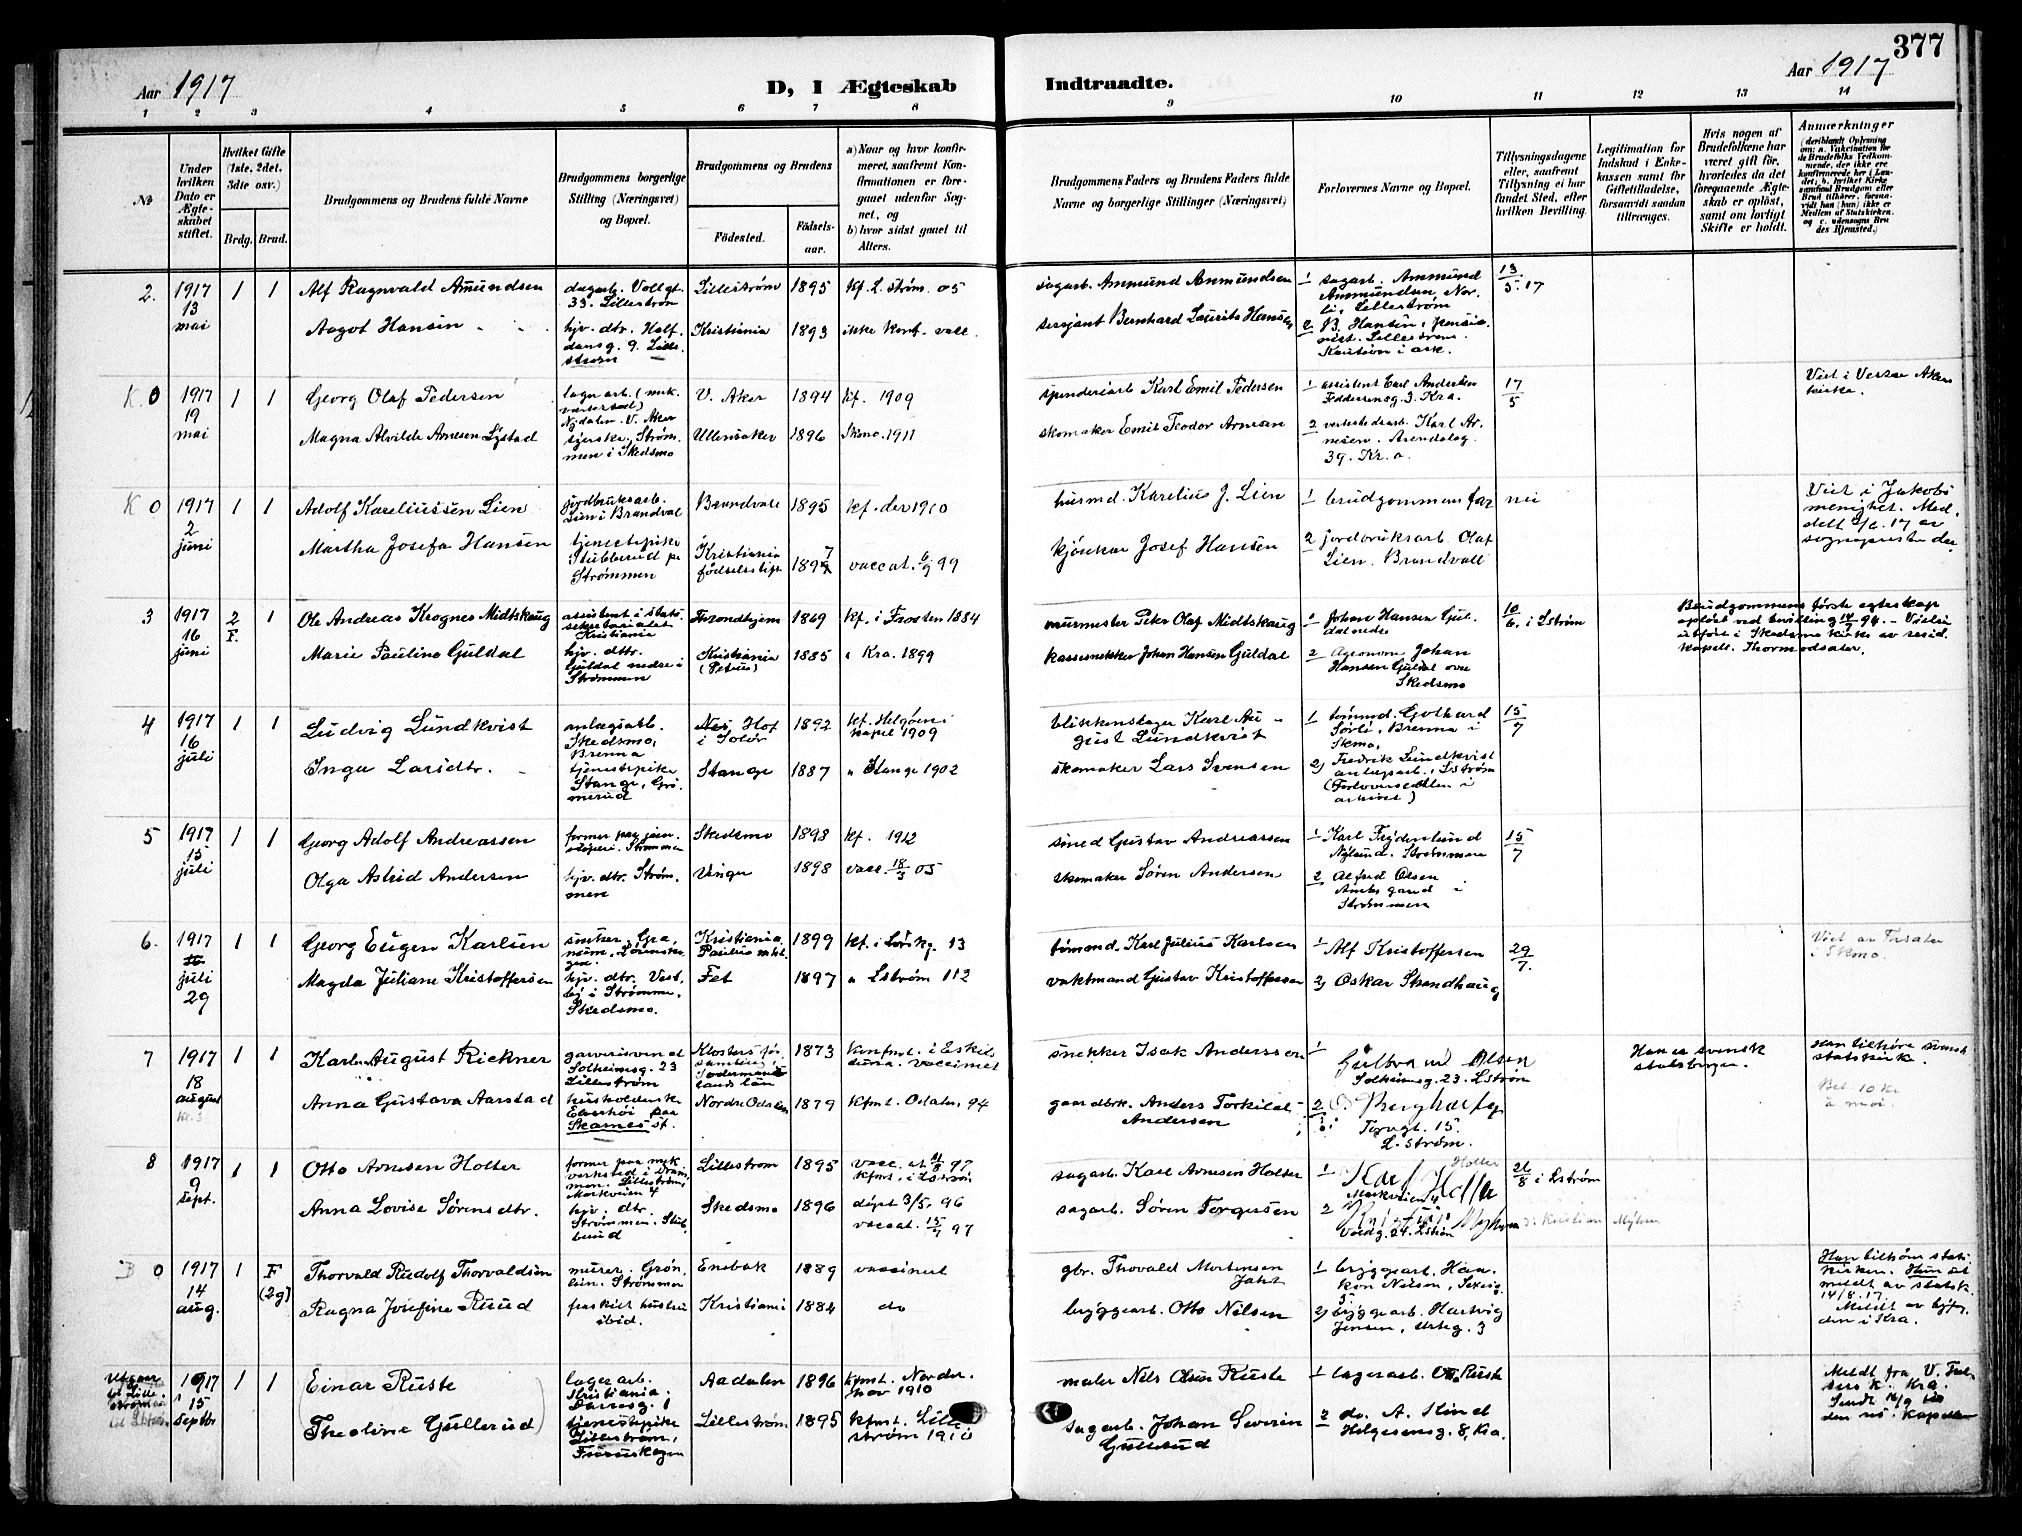 377
Aar 1917
D, I Ægteskab
Indtraadte.
Aar 1917
1 2 3 4 5 6 7 8 9 10 11 12 13 14
№
Under hvilken Dato er Ægteskabet stiftet.
Hvilket Gifte (1ste, 2det, 3die osv.)
Brdg. Brud.
Brudgommens og Brudens fulde Navne
Brudgommens borgerlige Stilling (Næringsvei) og Bopæl.
Brudgommens og Brudens
Fødested.
Fødselsaar.
a) Naar og hvor konfirmeret, saafremt Konfirmationen er foregaaet udenfor Sognet, og
b) hvor sidst gaaet til Alters.
Brudgommens Faders og Brudens Faders fulde Navne og borgerlige Stillinger (Næringsvei)
Forlovernes Navne og Bopæl.
Tillysningsdagene eller, saafremt Tillysning ei har fundet Sted, efter hvilken Bevilling.
Legitimation for Indskud i Enkekassen samt for Giftetilladelse, forsaavidt saadan tiltrænges.
Hvis nogen af Brudefolkene har været gift før, hvorledes da det foregaaende Ægteskab er opløst, samt om lovligt Skifte er holdt.
Anmærkninger
2. 1917 13 mai 1 1
Alf Ragnvald Amundsen
dagarb. Voldgt. 33. Lillestrøm
Lillestrøm 1895 kf. L.strøm. 05
sagarb. Ammund Ammundsen
1 sagarb. Ammund Ammundsen Nordli, Lillestrøm
13/5. 17
Aagot Hansen
hjv. dtr. Halfdansg. 9. Lillestrøm
Kristiania 1893 ikke konf. vacc.
sersjant Bernhard Laurits Hansen
2 B. Hansen, pensionist. Lillestrøm.
K. 0 1917 19 mai 1 1
Georg Olaf Pedersen
lagerarb. (mek. værksted) Nydalen. V. Aker
V. Aker 1894 kf. 1909
spinderiarb Karl Emil Pedersen
1 assistent Carl Andersen Feddersensg. 3. Kra.
17/5
Viet i Vestre Aker kirke.
Magna Alvilde Arnesen Lystad
syerske, Strømmen i Skedsmo
Ullensaker 1896 Skmo. 1911
skomaker Emil Teodor Arnesen
2 verkstedsarb. Karl Arnesen. Arendalsg. 39. Kr.a.
K 0 1917 2 juni 1 1
Adolf Kareliussen Lien
jordbruksarb. Lien i Brandval
Brandval 1895 kf. der 1910
husmd. Karelius J. Lien
1 brudgommens far
nei
Viet i Jakobs menighet. Meddelt 2/6. 17 av sognepresten der.
Martha Josefa Hansen
tjenestepike Stubberud pr Strømmen
Kristiania fødselsstift. 1897 vaccat. 6/9 99
kjøukar Josef Hansen
2 jordbruksarb Olaf Lien. Brandvall
3 1917 16 juni 2 F. 1
Ole Andreas Krognes Midtskaug
assistent i statssekretariatet Kristiania
Trondhjem 1869 kf. i Frosten 1884
murmester Peter Olaf Midtskaug
1 Johan Hansen Guldal nedre
10/6. i Lstrøm
Brudgommens første egteskap opløst ved bevilling 14/7 94. - Vielse utført i Skedsmo kirke av resid. kapell. Thormodsæter.
Marie Pauline Guldal
hjv. dtr. Guldal nedre i Strømmen
Kristiania (Petrus) 1885 " Kra. 1899
kassesnekker Johan Hansen Guldal
2 Agronom Johan Hansen Guldal øvre Skedsmo
4 1917 16 juli 1 1
Ludvig Lundkvist
anlægsarb. Skedsmo, Brenna
Hof i Solør 1892 kf. Helgøens kapel 1909
blikkenslager Karl August Lundkvist
1 tømmd. Gothard Sørli, Brenna i Skmo,
15/7
Inga Larsdtr.
tjenestepike Stange, Grømerud
Stange 1887 " Stange 1902
skomaker Lars Svensen
2) Fredrik Lundkvist anlægsarb. Lstrøm (Forloverseddelen i arkivet)
5 1917 15 juli 1 1
Georg Adolf Andreassen
former paa jernstøperi. Strømmen
Skedsmo 1893 kf. 1912
smed Gustav Andreassen
1 Karl Frydenlund Nylund. Strømmen
15/7
Olga Astrid Andersen
hjv. dtr. Strømmen
Vinger 1898 vacc. 18/5 05
skomaker Søren Andersen
2 Alfred Olsen gaard i Strømmen
6. 1917 juli 29 1 1
Georg Eugen Karlsen
Kristiania Paulus mht. 1899 kf. i Lørskg. 13
tømmd. Karl Julius Karlsen
1 Alf Kristoffersen
29/7.
Viet av Torsater i Skmo.
Magda Juliane Kristoffersen
hjv. dtr. Vestby i Strømmen, Skedsmo.
Fet 1897 " Lstrøm 112
vaktmand Gustav Kristoffersen
2) Oskar Strandhaug
7 1917 18 august kl. 3 1 1
Karl August Rickner
garverisvend Solheimsg. 23 Lillestrøm
1873 konfmt. i Eskilstuna. vaccinet
snekker Isak Anderssen
1 Gulbrand Olsen Solheimsg. 23. Lstrøm
Han er svensk statsborger.
Han tilhøre svensk statskirk.
Bet. 10 kr
Anna Gustava Aarstad
husholderske Elverhøi paa Skarnes st.
Nordre Odalen 1879 kfmt. Odalen, 94
gaardbrk. Anders Torkildt Andersen
2 Torvgt. 15. L.strøm.
8 1917 9 sept. 1 1
Otto Arnesen Holter
former paa mek. verksted i Drammen. Lillestrøm, Markveien 4
Lillestrøm 1895 vacc. at 11/8 97 kfmt. i Lstrøm
sagarb. Karl Arnesen Holter
1 Karl Holter Holter Markveien 4
26/8 i Lstrøm
Anna Lovise Sørensdtr.
hjv. dtr. Strømmen. Stubberud
Skedsmo 1896 døpt 3/5, 96 vaccat. 15/9 97
sagarb. Søren Torgersen
2 Myhren Voldg. 24. Lstrøm
Kristian Myhren
B 0 1917 14 aug. 1 F (2g)
Thorvald Rudolf Thorvaldsen
murer. Grønlien. Strømmen
Enebak 1889 vaccinert
gbr. Thorvald Mortensen
1 bryggearb. Haakon Nilsen,
Han tilhører statskirken. Hun utmeldt av statsk. 14/8. 17. Meldt av byfogden i Kra.
Ragna Josefine Ruud
fraskilt hustru ibid.
Kristiania 1884 do
bryggearb. Otto Nilsen
2) bryggearb. Hartvig Jensen, Urteg. 3
1917 15 Septbr 1 1
Einar Ruste
lagerarb. Kristiania.
Aadalen 1896 kfmt. Norderhov 1910
maler Nils Olsen Ruste
1 lagerarb. O. Ruste
Meldt fra V. Fr. k. Kra.
Theoline Gullerud
tjenestepike Lillestrøm,
Lillestrøm 1895 kfmt. Lillestrøm 1910
sagarb. Johan Severin Gullerud
2 do. A. Helgesensg. 8, Kra.